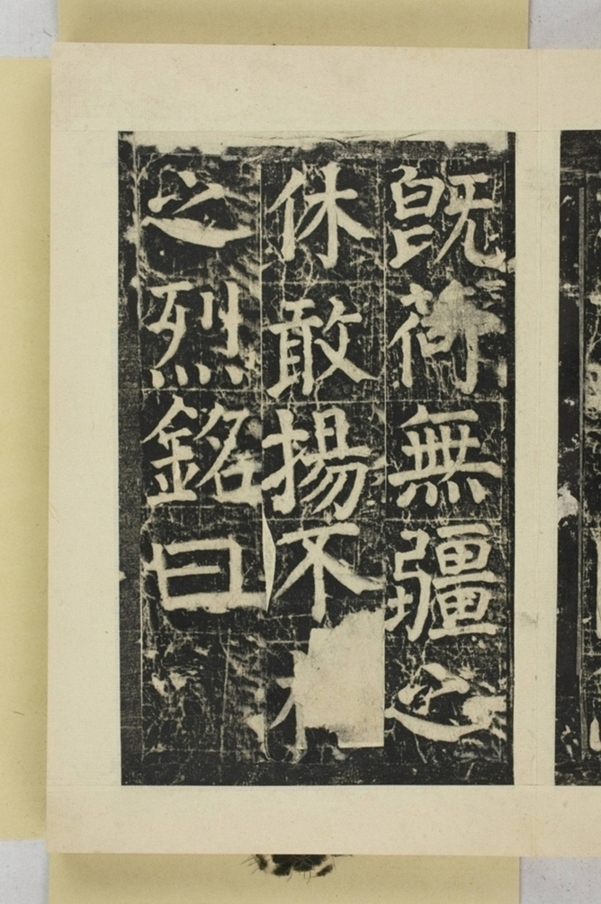 既荷無疆之
休敢揚不
之烈銘曰